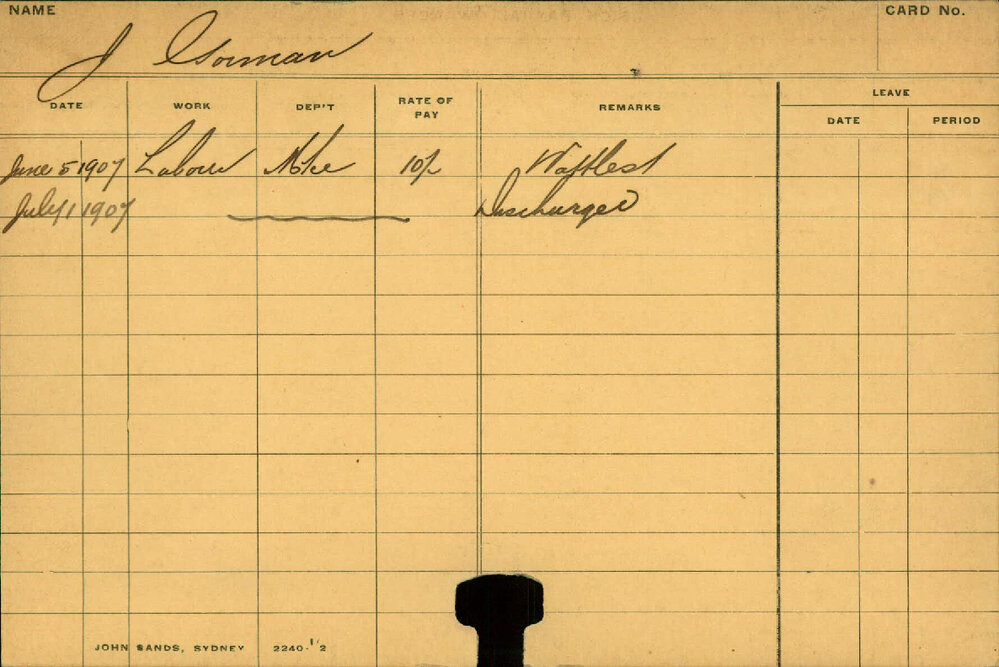 NAME J Gorman CARD No.
DATE WORK DEP'T RATE OF PAY REMARKS LEAVE
DATE PERIOD
June 5 1907 Labour 10/-
July 1 1907 Discharged
JOHN SANDS, SYDNEY 2240.1/2